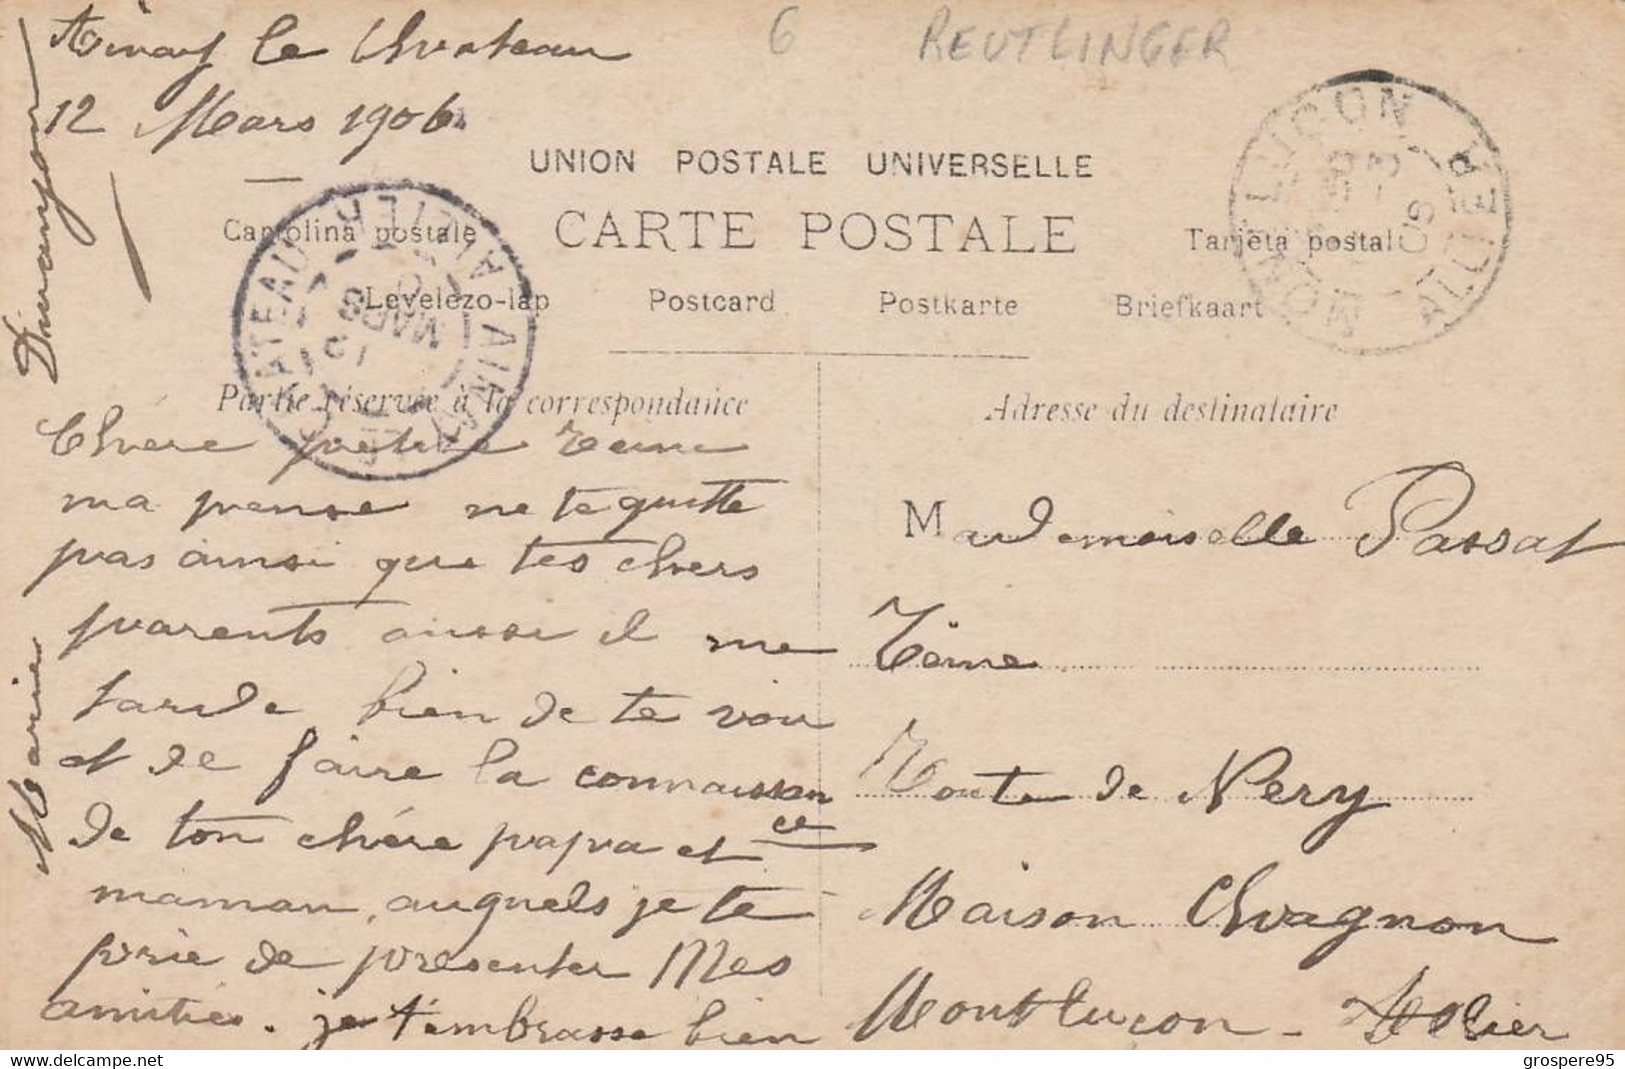 Ainay le Chateau
12 Mars 1906
6 REUTLINGER
UNION POSTALE UNIVERSELLE
CARTE POSTALE
Cartolina postale
Tarjeta postal
Levelezo-lap
Postcard
Postkarte
Briefkaart
AINAY LE CHATEAU ALLIER
MARS
MONTLUCON ALLIER
Partie réservée à la correspondance
Adresse du destinataire
Chere petite
ma pensee ne te quitte
pas ainsi que tes chers
parents aussi il me
tarde bien de te voir
et de faire la connaissan
ce
de ton chére papa et
maman, auquels je te
prie de présenter Mes
amitiés. je t'embrasse bien
Marie
Mademoiselle Passat
Route de Nery
Maison Chagnon
Montluçon - Allier
grospere95